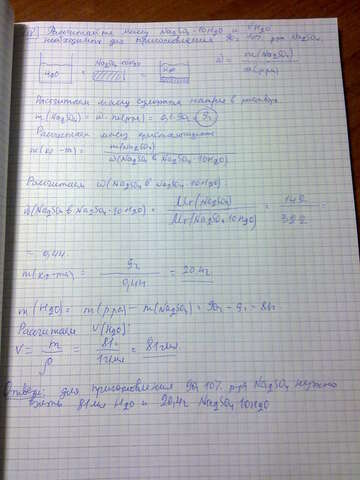 Рассчитайте массу Na2SO4·10H2O и H2O
необходимых для приготовления 90г 10% р-ра Na2SO4
H2O Na2SO4·10H2O H2O
ω = m(Na2SO4) / m(р-ра)
Рассчитаем массу сульфата натрия в растворе
m(Na2SO4) = ω · m(р-ра) = 0,1·90г = 9г
Рассчитаем массу кристаллогидрата
m(кр-та) = m(Na2SO4) / ω(Na2SO4 в Na2SO4·10H2O)
Рассчитаем ω(Na2SO4 в Na2SO4·10H2O):
ω(Na2SO4 в Na2SO4·10H2O) = Mr(Na2SO4) / Mr(Na2SO4·10H2O) = 142 / 322 =
= 0,44.
m(кр-та) = 9г / 0,44 = 20,4г
m(H2O) = m(р-ра) - m(Na2SO4) = 90г - 9г = 81г
Рассчитаем V(H2O):
V = m / ρ = 81г / 1г/мл = 81мл.
Ответ: для приготовления 90г 10% р-ра Na2SO4 нужно
взять 81мл H2O и 20,4г Na2SO4·10H2O